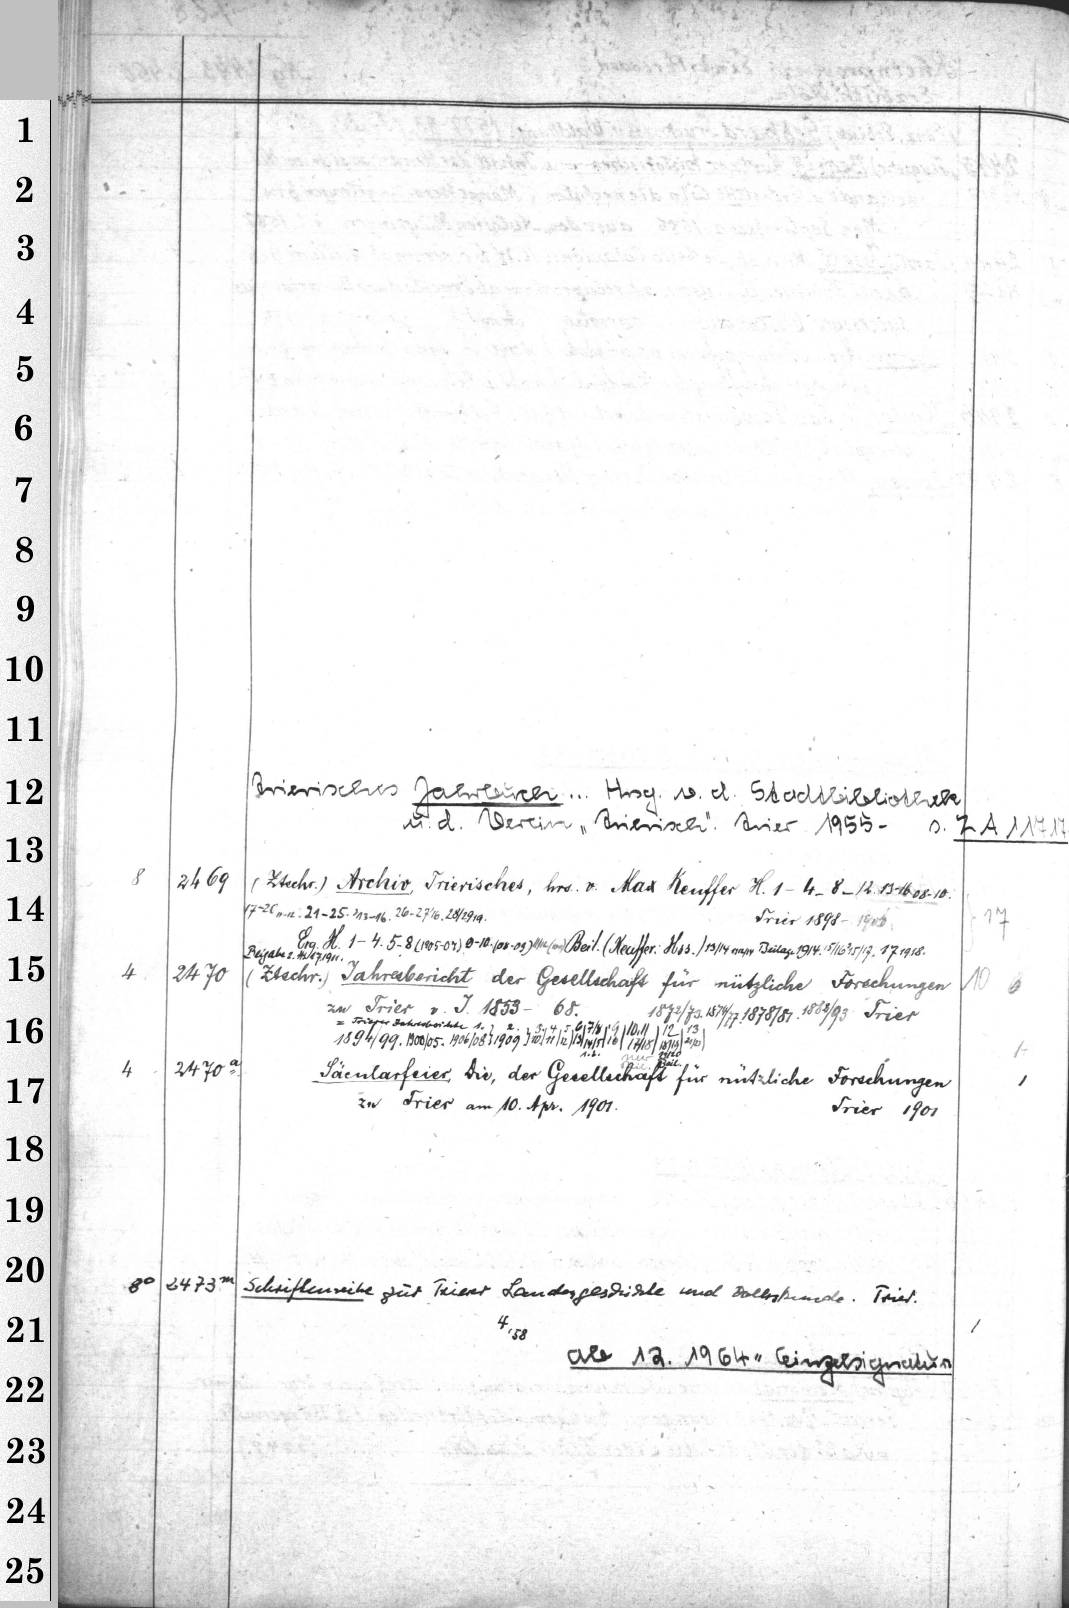 1
2
3
4
5
6
7
8
9
10
11
12
13
14
15
16
17
18
19
20
21
22
23
24
25
Trierisches Jahrbuch ... Hrsg. v. d. Stadtbibliothek
u. d. Verein „Trierisch". Trier 1955- s. Z A 11717
8 2469 (Ztschr.) Archiv, Trierisches, hrs. v. Max Keuffer H. 1-4-8-12.13-16 08-10.
17-20 21-25. 26-27/16. 28/29 19. Trier 1898- 17
Erg. H. 1-4. 5-8 (1905-07) 9-10. (08-09) Beil. (Keuffer: Hss.) 13/14 Beilage 1914. 17 1918.
4 2470 (Ztschr.) Jahresbericht der Gesellschaft für nützliche Forschungen 10
zu Trier v. J. 1853-68. 1872/73. 1874/77. 1878/81. 1882/93 Trier
= Trierer Jahresberichte 1. 2. 3 4 5 6 7/8 9 10.11 12 13
1894/99. 1900/05. 1906/08 1909 10 11 12
4 2470a Säcularfeier, Die, der Gesellschaft für nützliche Forschungen 1
zu Trier am 10. Apr. 1901. Trier 1901
8° 2473m Schriftenreihe zur Trierer Landesgeschichte und Volkskunde. Trier.
4,58 1
ab 12. 1964 „ Einzelsignatur